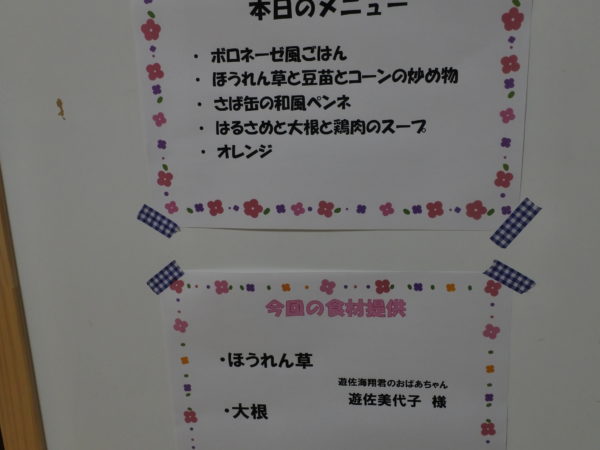 本日のメニュー
・ ボロネーゼ風ごはん
・ ほうれん草と豆苗とコーンの炒め物
・ さば缶の和風ペンネ
・ はるさめと大根と鶏肉のスープ
・ オレンジ
今回の食材提供
・ほうれん草
遊佐海翔君のおばあちゃん
遊佐美代子 様
・大根